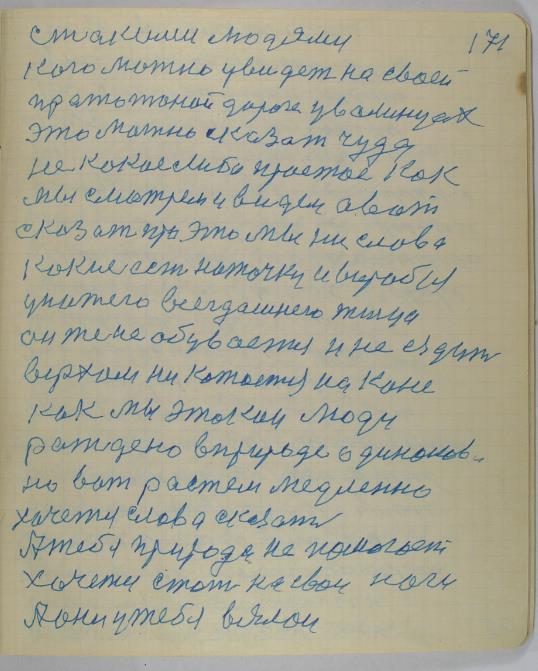 стакими людями 171
кого можно увидет на своей
пратожоной дороге увалинцах
это можно сказат чудо
не какоелибо простое Как
мы смотрем и видем овот
сказат про это мы ни слова
какие ест на точку и вороб&я
унашего всегдашнего жилца
он же не обувается и не ездит
верхом ни катается на коне
как мы этокии люди
рождено вприроде одинаков-
но вот растем медленно
хочется слова сказат
Атебя природа не помогает
Хочется стат на свои ноги
Аони утебя вялои